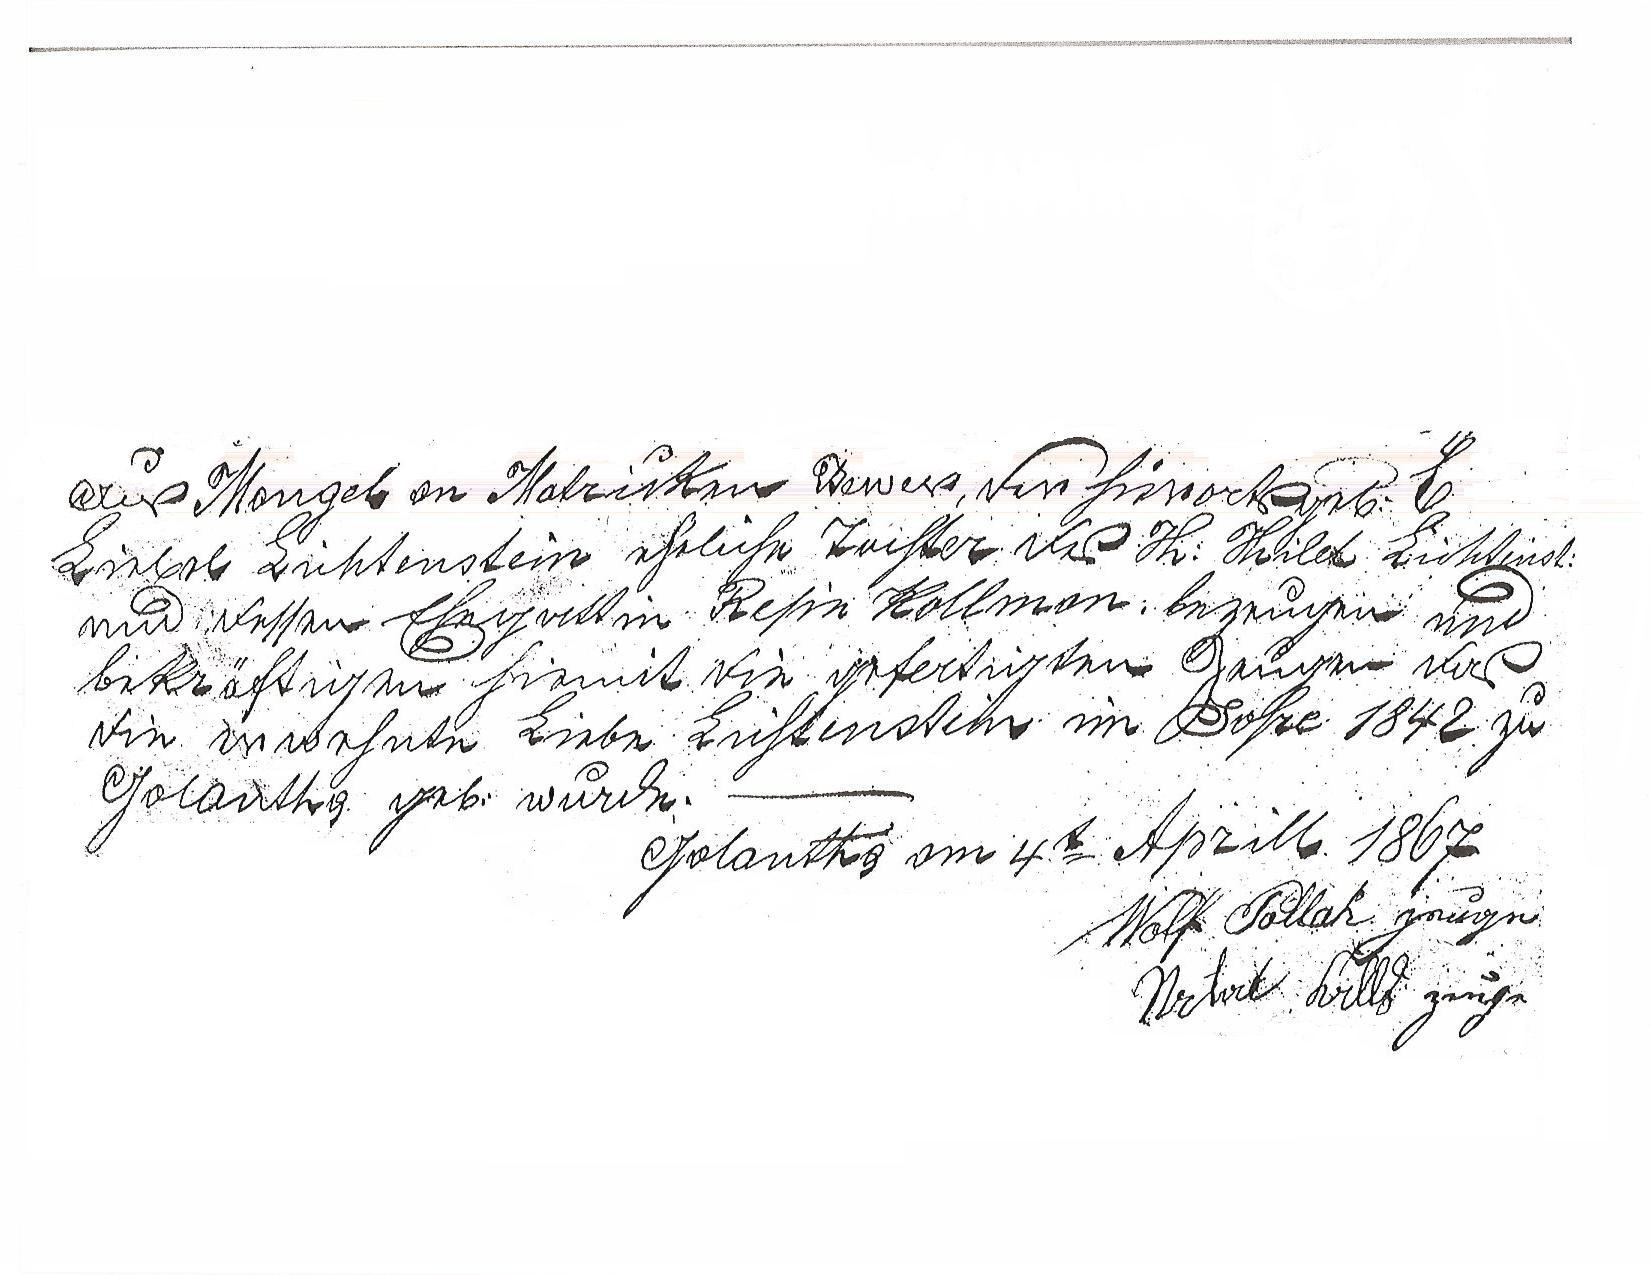 aus Mangel an Matricken Beweis, der hierorts geb:
Liebel Lichtenstein eheliche Tochter des H: Hilel Lichtenst:
und dessen Ehegattin Resie Kollman. bezeugen und
bekräftigen hiemit die gefertigten Zeugen das
die erwehnte Liebe Lichtenstein im Jahre 1842 zu
Galantha geb. wurde.
Galantha am 4t Aprill 1867
Wolf Pollak zeuge
zeuge